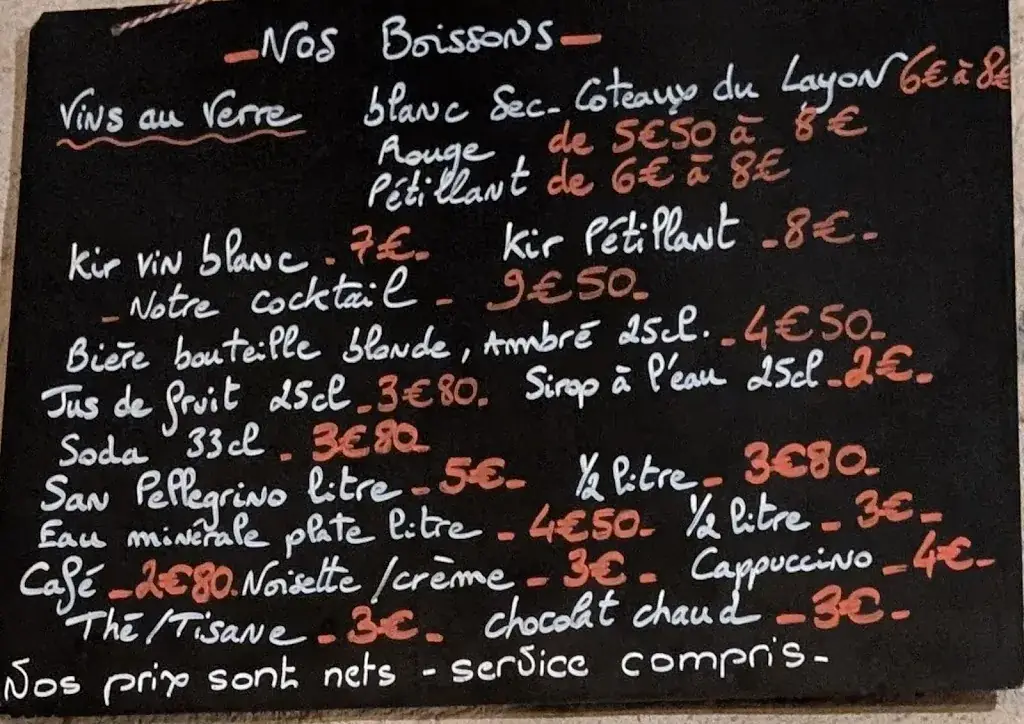 - Nos Boissons -
Vins au Verre blanc Sec - Coteaux du Layon 6€ à 8€
Rouge de 5€50 à 8€
Pétillant de 6€ à 8€
Kir vin blanc - 7€ - Kir Pétillant - 8€ -
- Notre cocktail - 9€50 -
Bière bouteille blonde, Ambré 25cl. - 4€50 -
Jus de fruit 25cl - 3€80. Sirop à l'eau 25cl - 2€ -
Soda 33cl - 3€80
San Pellegrino litre - 5€ - 1/2 litre - 3€80 -
Eau minérale plate litre - 4€50 - 1/2 litre - 3€ -
Café - 2€80. Noisette / crème - 3€ - Cappuccino - 4€ -
Thé / Tisane - 3€ - chocolat chaud - 3€ -
Nos prix sont nets - service compris -